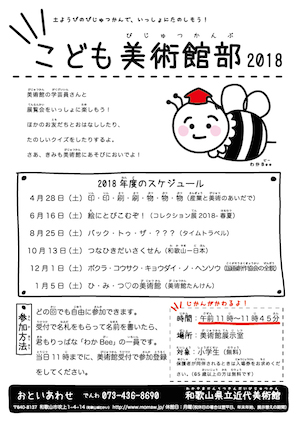 土ようびのびじゅつかんで、いっしょにたのしもう！
こども美術館部 2018
美術館の学芸員さんと
展覧会をいっしょに楽しもう！
ほかのお友だちとおはなししたり、
たのしいクイズをしたりするよ。
さあ、きみも美術館にあそびにおいでよ！
わかBee
2018年度のスケジュール
4月28日（土）印・印・刷・刷・物・物・物（産業と美術のあいだで）
6月16日（土）絵にとびこむぞ！（コレクション展2018-春夏）
8月25日（土）バック・トゥ・ザ・？？？（タイムトラベル）
10月13日（土）つなひきだいさくせん（和歌山－日本）
12月1日（土）ボクラ・コウサク・キョウダイ・ノ・ヘンソウ
1月5日（土）ひ・み・つ♡の美術館（美術館たんけん）
参加方法
どの回でも自由に参加できます。
受付で名札をもらって名前を書いたら、
君もりっぱな「わかBee」の一員です。
当日11時までに、美術館受付で参加登録
をしてください。
じかんがかわるよ！
時間：午前11時〜11時45分
場所：美術館展示室
対象：小学生（無料）
おといあわせ でんわ 073-436-8690
和歌山県立近代美術館
〒640-8137 和歌山市吹上1-4-14